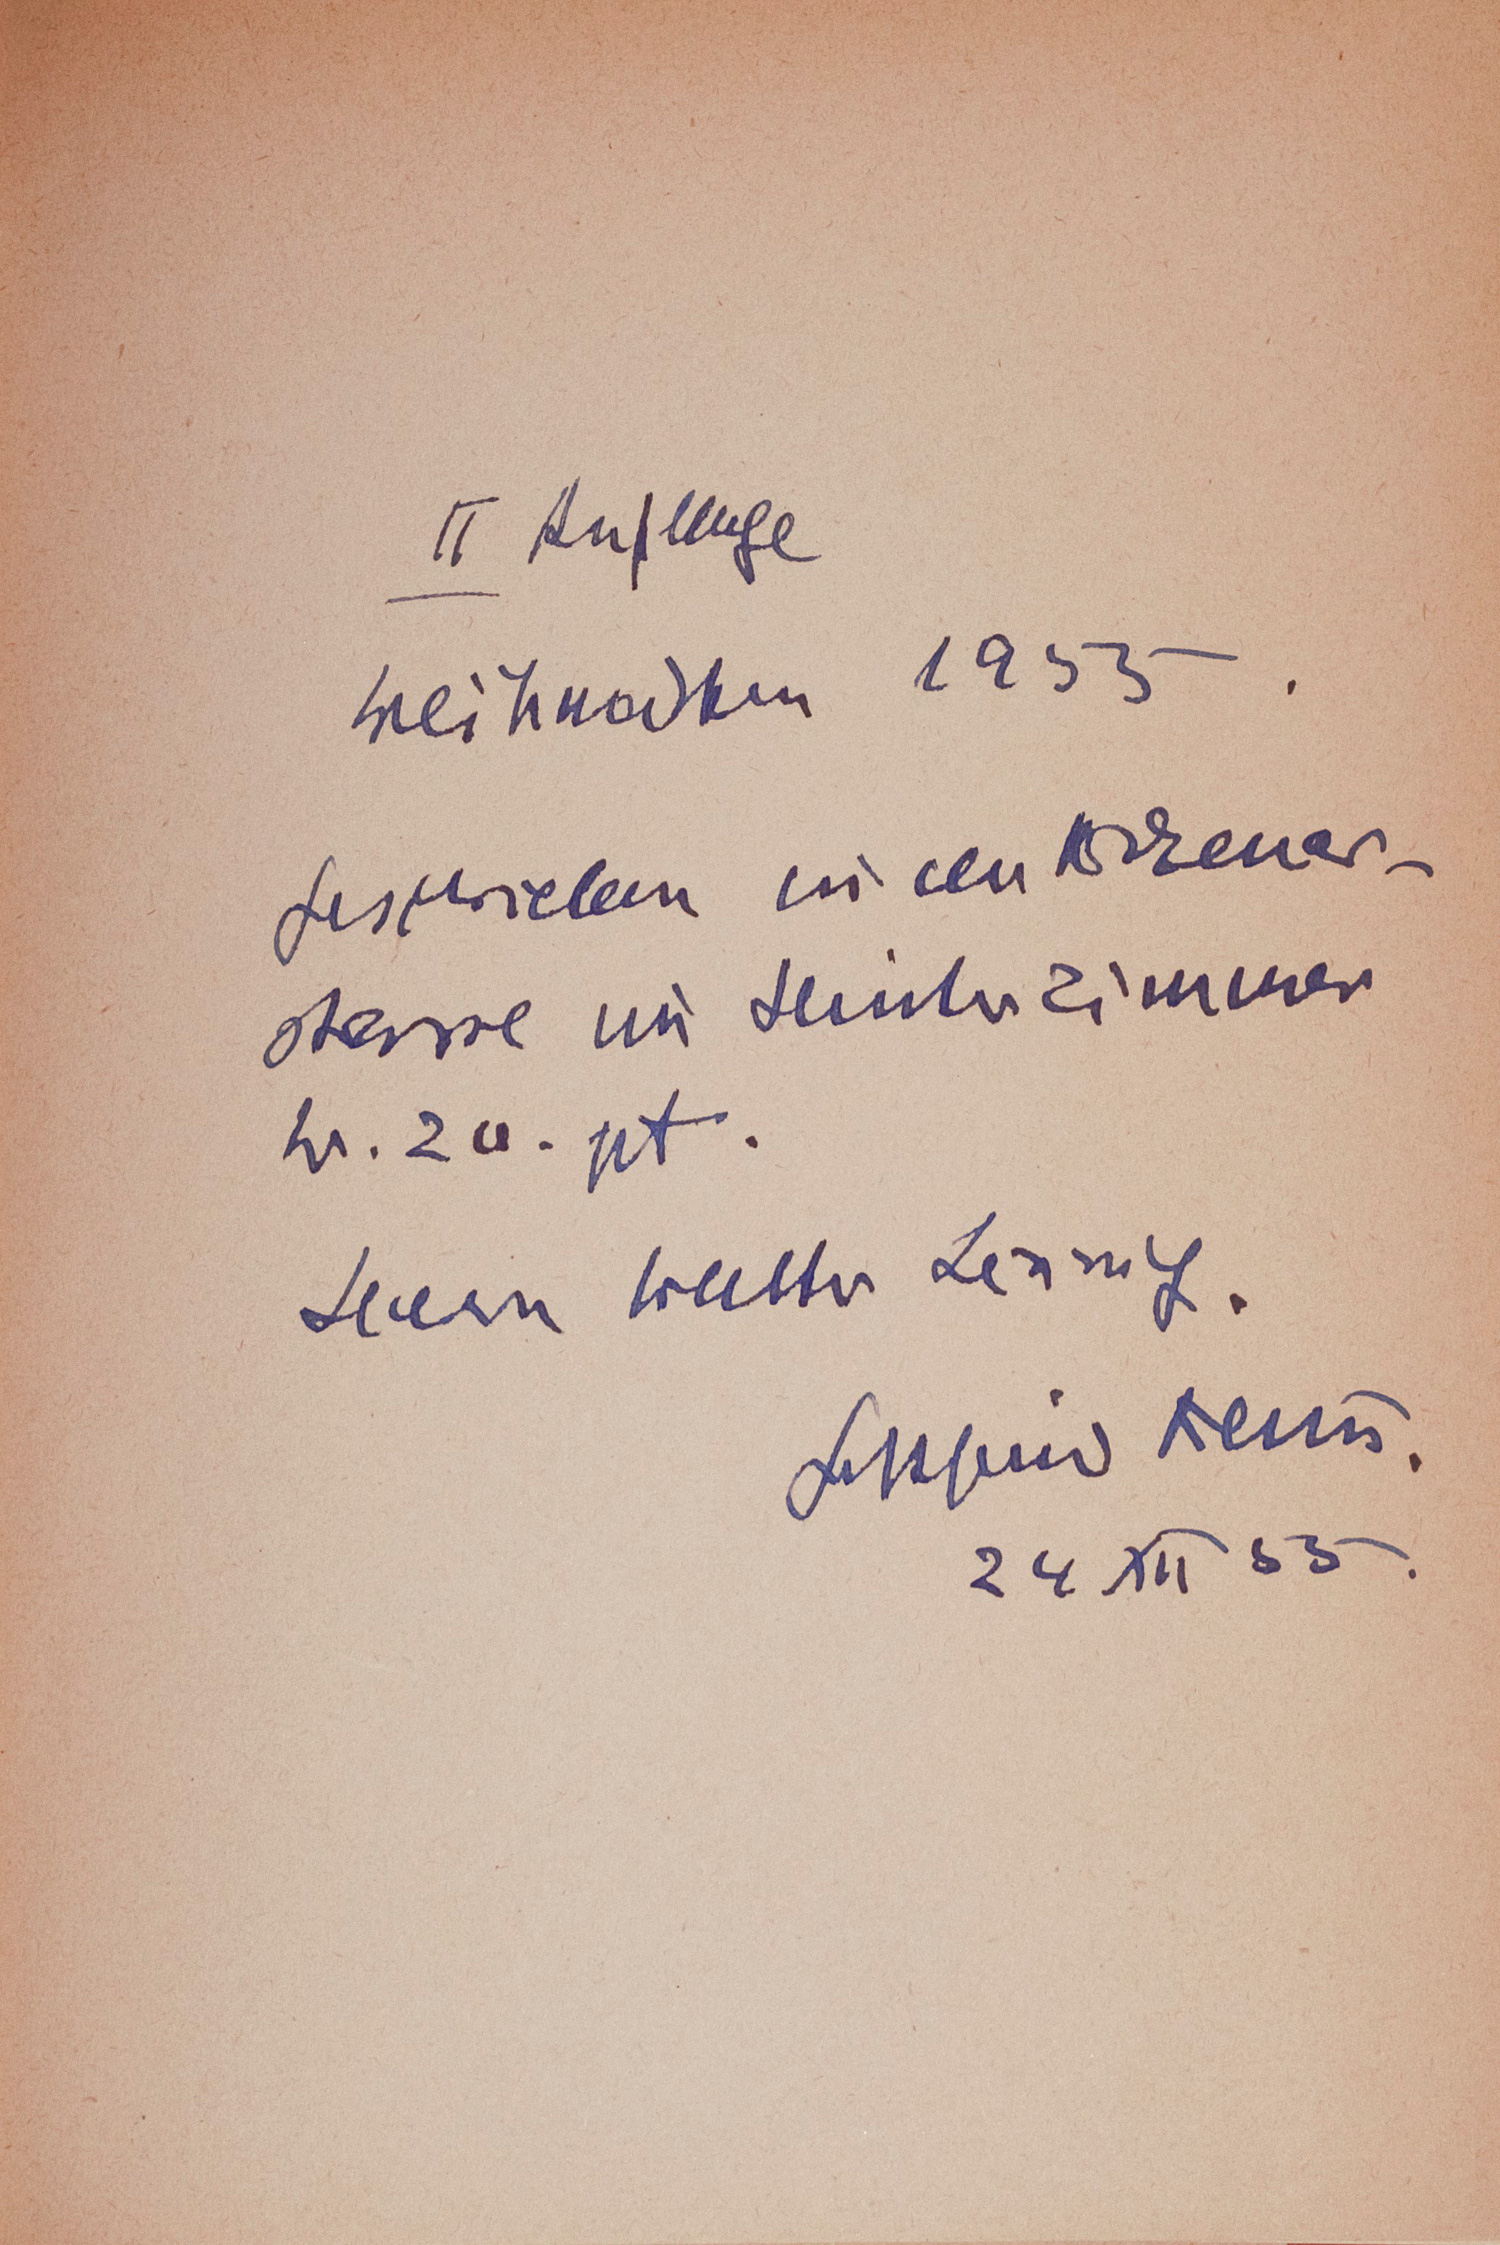 II Auflage
Weihnachten 1955.
Geschrieben in der Bozener-
strasse im Hinterzimmer
Nr. 20. pt.
Herrn Walter Lennig.
Gottfried Benn.
24 XII 55.